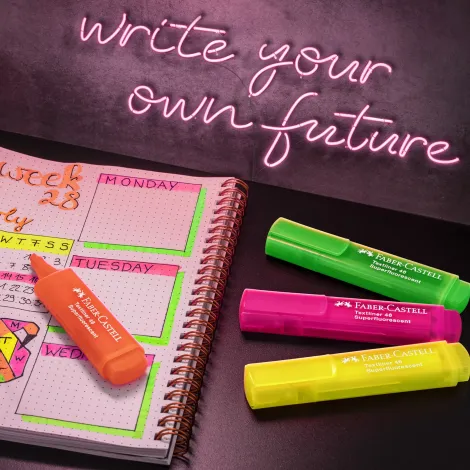 write your
own future
week
28
MONDAY
W T F S S
TUESDAY
WED
FABER-CASTELL
Textliner 46
Superfluorescent
FABER-CASTELL
Textliner 46
Superfluorescent
FABER-CASTELL
Textliner 46
Superfluorescent
FABER-CASTELL
Textliner 46
Superfluorescent